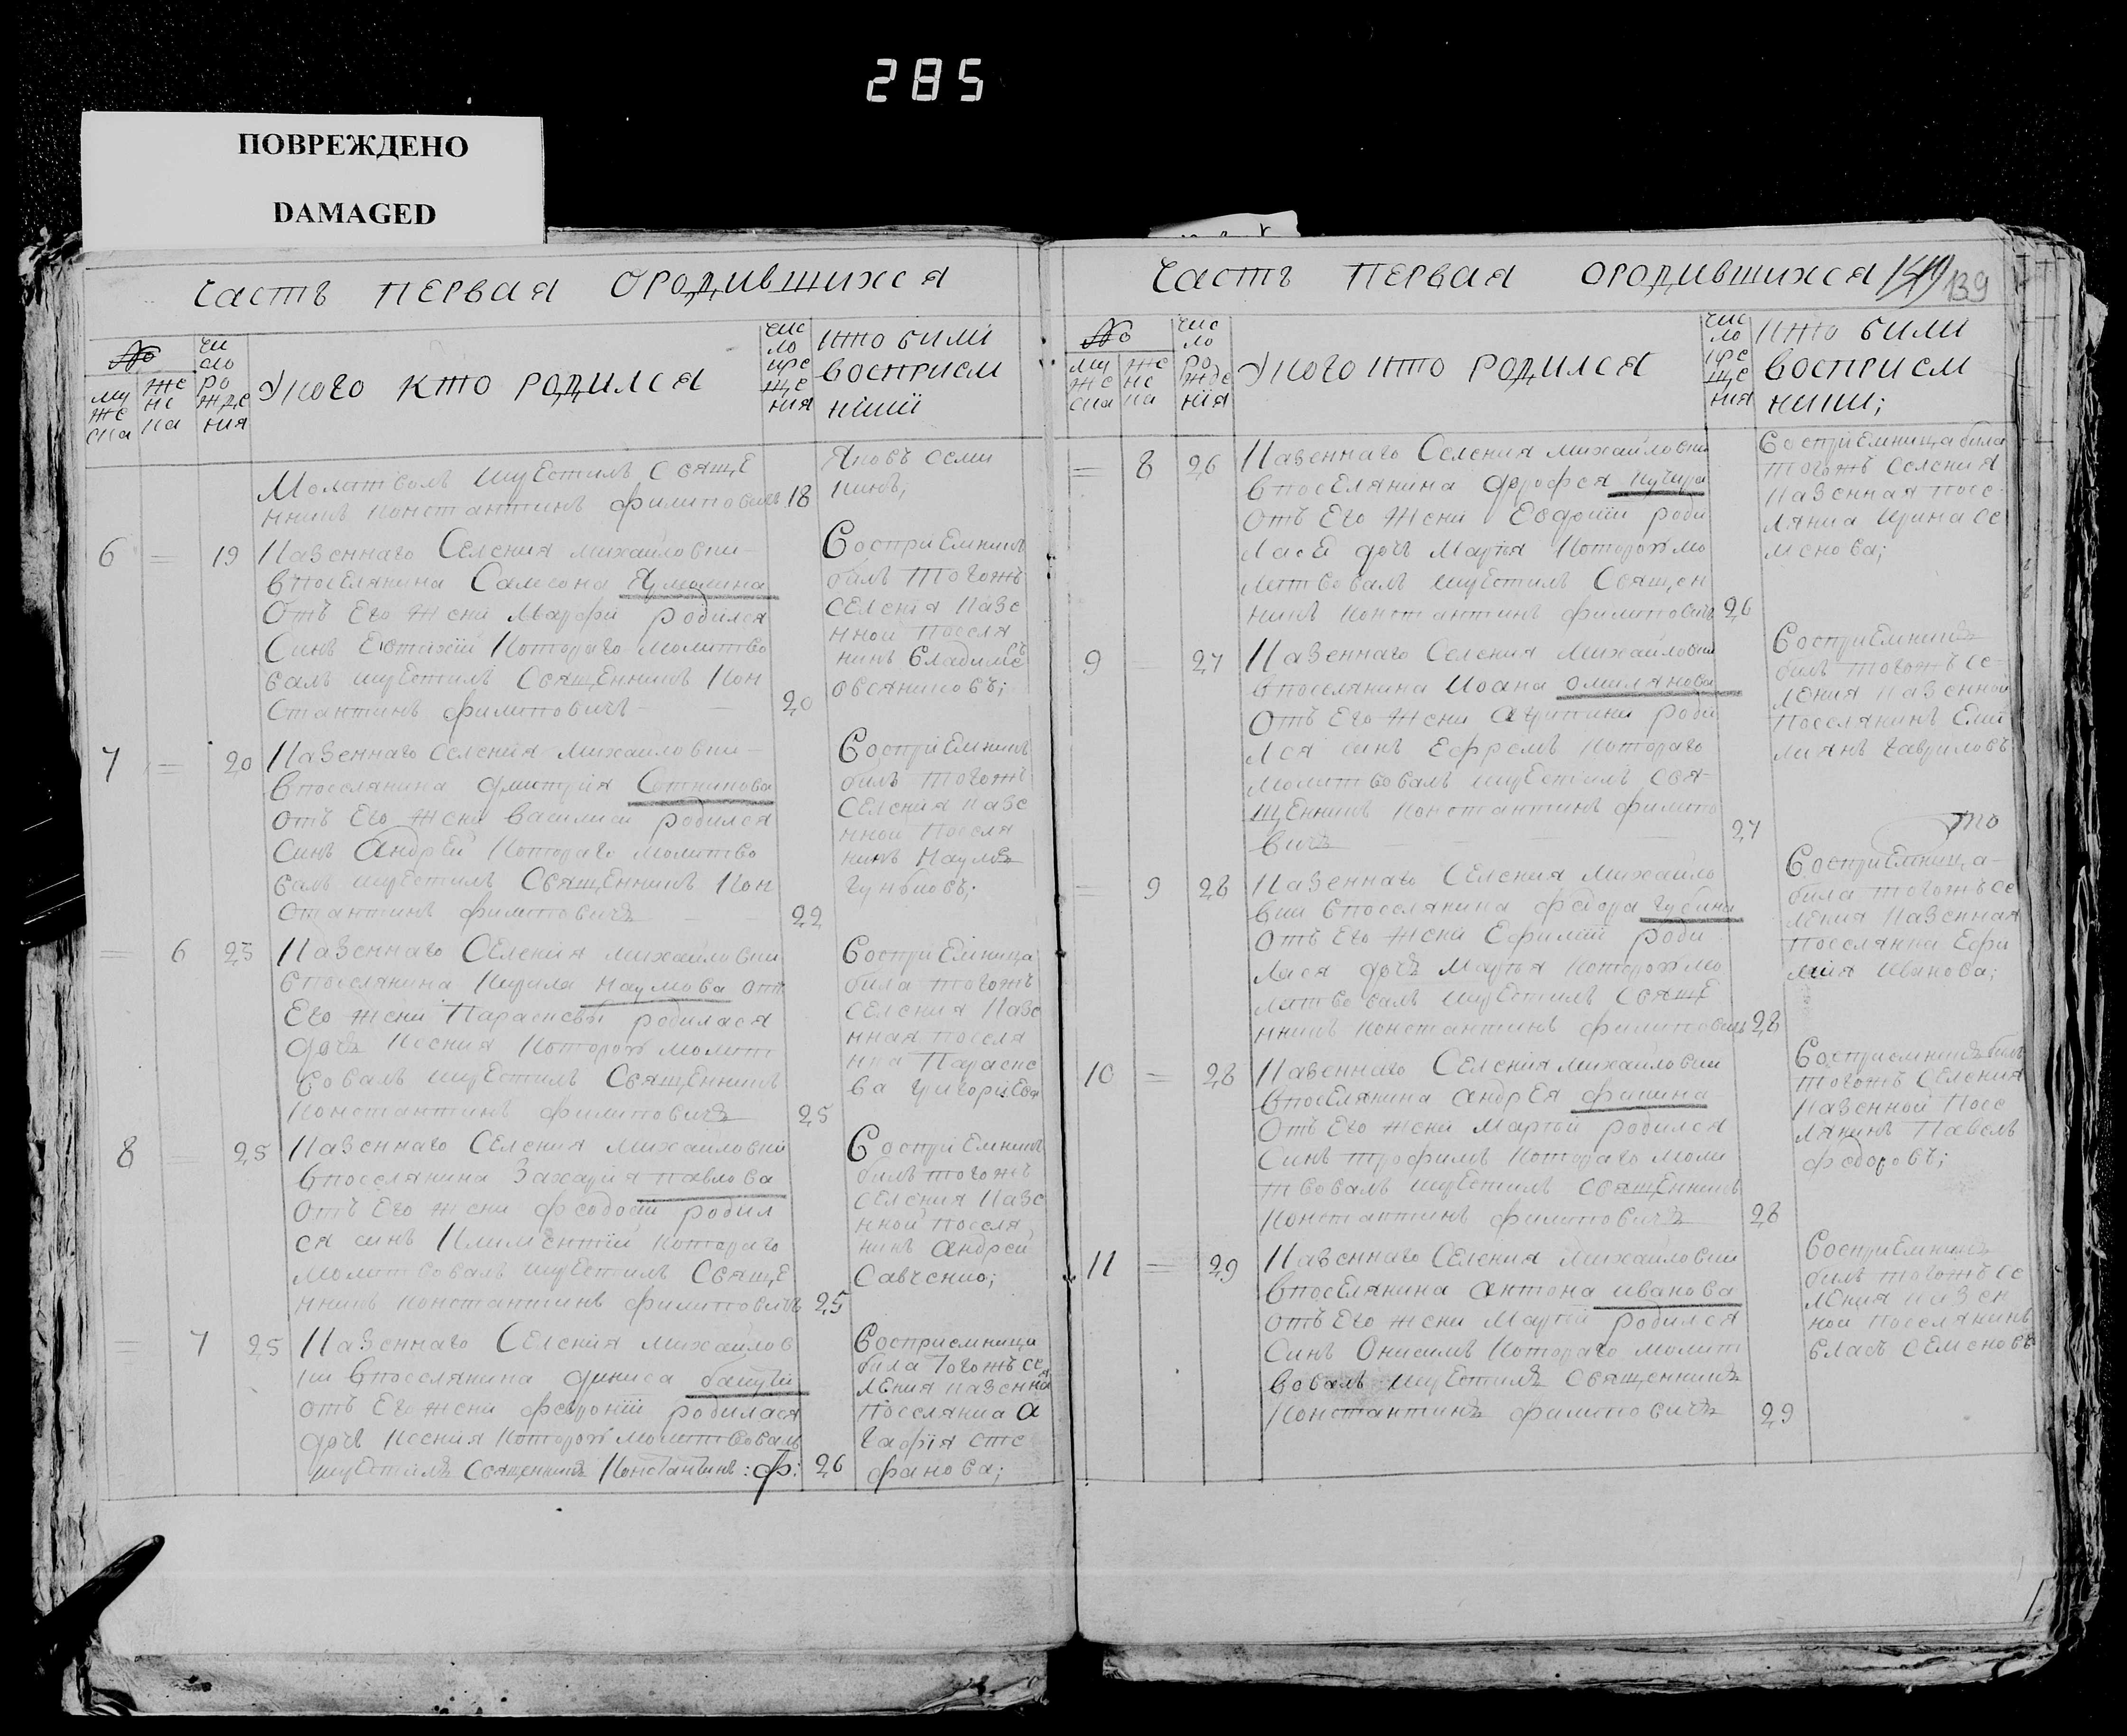 285
ПОВРЕЖДЕНО
DAMAGED
Часть первая ородившихся
№
му
же
ска
же
нс
ка
чи
сло
ро
жде
ния
Укого кто родился
чис
ло
кре
ще
ния
кто били
восприем
ники
Молитвовалъ икрестилъ Свяще
нникъ Константинъ филиповичъ 18
Яковъ Семи
кинъ;
6 = 19
Казеннаго Селения михайловки
впоселянина Самсона Ярмолина
Отъ Его жени Марфи родился
Синъ Евтихий Котораго молитво
валъ икрестилъ Священникъ Кон
стантинъ филиповичъ 20
Восприемникъ
билъ тогожъ
селения Казе
нной поселя
нинъ Владимеръ
овсяниковъ;
7 = 20
Казеннаго селения михайловки
впоселянина дмитрия Сотникова
отъ Его жени василиси родился
Синъ Андрей Котораго молитво
валъ икрестилъ Священникъ Кон
стантинъ филиповичъ 22
Восприемникъ
билъ тогожъ
селения казе
нной поселя
нинъ Наумъ
= 6 25
Казеннаго Селения михайловки
впоселянина Кирила Наумова отъ
Его жени Параскеви родилася
дочъ Ксения Которою молит
вовалъ икрестилъ Священникъ
Константинъ филиповичъ 25
Восприемница
била тогожъ
селения Казе
нная поселя
нка Параске
ва григориева
8 = 25
Казеннаго Селения михайловки
впоселянина Захария павлова
Отъ Его жени феодосии родил
ся синъ Климентий котораго
молитвовалъ икрестилъ Свяще
нникъ Константинъ филиповичъ 25
Восприемникъ
билъ тогожъ
селения Казе
нной поселя
нинъ андрей
Савченко;
= 7 25
Казеннаго Селения михайлов
ки впоселянина дениса
отъ Его жени февронии родилася
дочъ Ксения Которою молитвовалъ
икрестилъ Священникъ Константинъ :ф: 26
Восприемница
била Тогожъ се
ления казенная
поселянка а
гафiя сте
фанова;
Часть первая ородившихся 139
№
му
же
ска
же
нс
ка
чис
ло
ро
жде
ния
Укого кто родился
чис
ло
кре
ще
ния
кто били
восприем
ники;
= 8 26
Казеннаго Селения михайловки
впоселянина дорофея кучера
Отъ Его жени Евдокии роди
ласе дочъ Мария Которою мо
литвовалъ икрестилъ Священ
никъ Константинъ филиповичъ 26
Восприемница била
тогожъ селения
Казенная посе
лянка Ирина се
менова;
9 = 27
Казеннаго Селения Михайловки
впоселянина Иоана омилянова
Отъ Его жени Агрипини роди
лся синъ Ефремъ Котораго
молитвовалъ икрестилъ свя-
щенникъ Константинъ филипо
вичъ 27
Восприемникъ
билъ тогожъ се-
ления казенной
поселянинъ Еми
лиянъ гавриловъ
= 9 28
Казеннаго Селения Михайло
вки впоселянина федора губина
Отъ Его жени Ефимии роди
лася дочъ Мария Которою мо
литвовалъ икрестилъ Свяще
нникъ Константинъ филиповичъ 28
то
Восприемница-
била тогожъ се
ления Казенная
поселянка Ефи
мия Иванова;
10 = 28
Казеннаго Селения Михайловки
впоселянина андрея фикина
Отъ Его жени Марфи родился
Синъ трофимъ Котораго моли
твовалъ икрестилъ Священникъ
Константинъ филиповичъ 28
Восприемникъ билъ
тогожъ Селения
Казенной посе
лянинъ Павелъ
федоровъ;
11 = 29
Казеннаго Селения Михайловки
впоселянина антона иванова
отъ Его жени Марии родился
Синъ Онисимъ Котораго молит
вовалъ икрестилъ Священникъ
Константинъ филиповичъ 29
Восприемникъ
билъ тогожъ се
ления казен
ной поселянинъ
власъ Семеновъ